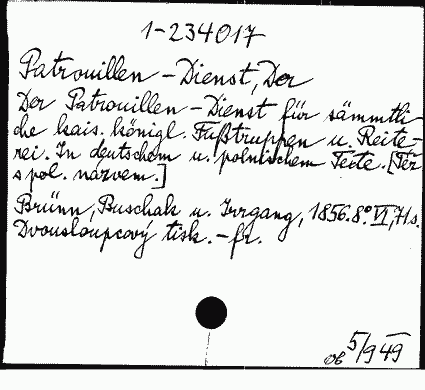 1-234017
Patrouillen-Dienst, Der
Der Patrouillen-Dienst für sämmtli-
che kais. königl. Fußtruppen u. Reite-
rei. In deutschem u. polnischem Texte. [Tér
s pol. názvem.]
Brünn, Buschak u. Irrgang, 1856. 8°. VI, 71 s.
Dvousloupcový tisk. - fr.
5/9 49